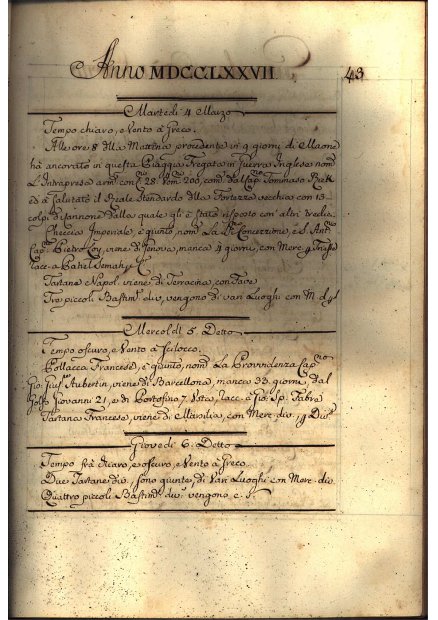 Anno MDCCLXXVII 43
Martedi 4 Marzo
Tempo chiaro, e Vento à Greco.
Alle ore 8 della Mattina procedente in 9 giorni di Maone
hà ancorato in questa Piaggia Fregata in Guerra Inglese nomᵗᵃ
L'Intrapresa armᵗᵃ con 28 Comᵗᵃ 200, comᵗᵃ dal Capⁿᵒ Tommaso
ed à Salutato il Reale Stendardo della Fortezza vecchia con 13
colpi di Cannone dalla quale gli è stato risposto con altri tredici.
Imperiale, è giunto, nomᵗᵃ La Concezzione, e S. Antᵒ
Capⁿᵒ Pietro viene di Genova, manca 4 giorni, con Merc.
racc. a
Tartana Napol. viene di Terracina, con Fave
Tre piccoli Bastimᵗⁱ div. vengono di vari Luoghi con M. d.
Mercoldì 5. Detto
Tempo oscuro, e Vento à Scilocco.
Pollacca Francese, è giunto, nomᵗᵃ La Providenza Capⁿᵒ
Gio: Aubertin, viene di Barcellona, manca 33 giorni, dal
Golfo Giovanni 21, e di Portofino 7. racc. à Gio: Fabre
Tartana Francese, viene di Marsilia, con Merc. div.
Giovedi 6. Detto
Tempo frà chiaro, e oscuro, e Vento à Greco
Due Tartane div. sono giunte, di Vari Luoghi con Merc. div.
Quattro piccoli Bastimᵗⁱ div. vengono c. s.